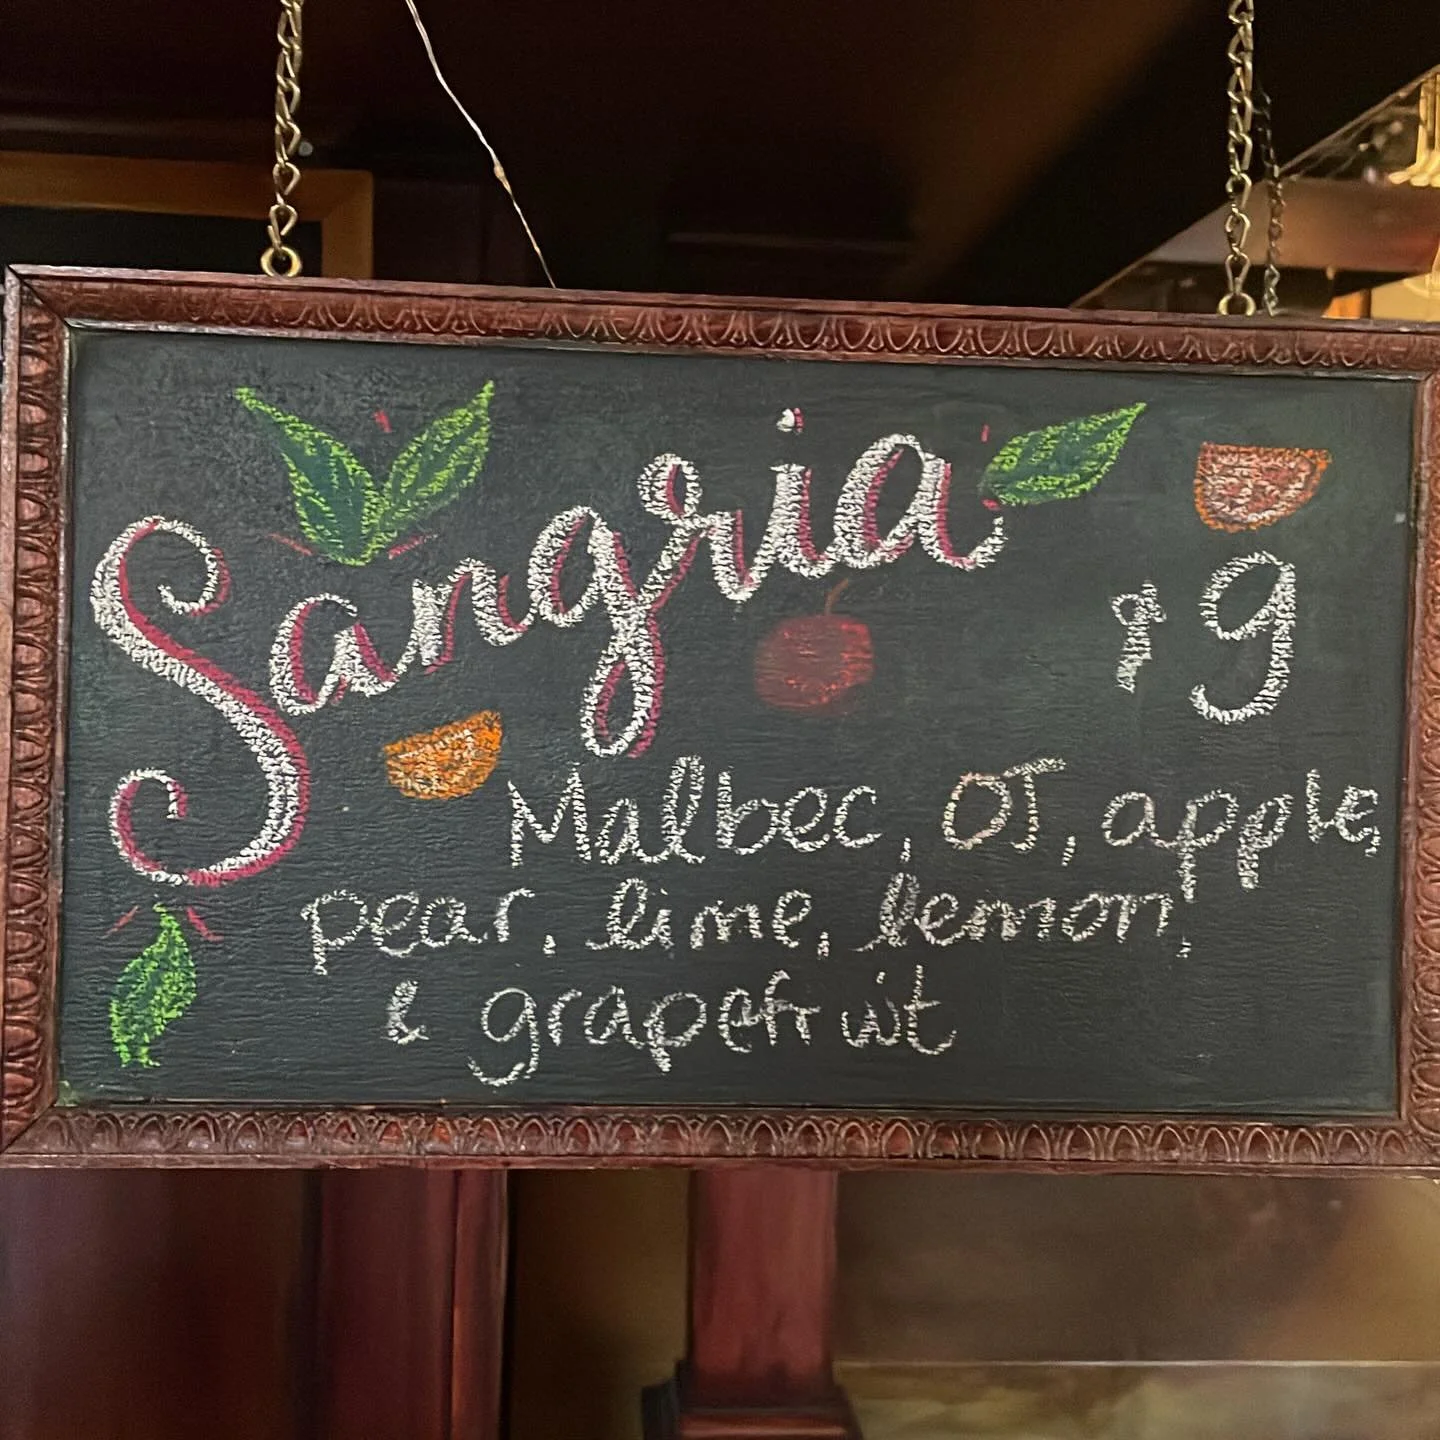 Sangria
9
Malbec, OJ, apple,
pear, lime, lemon,
& grapefruit